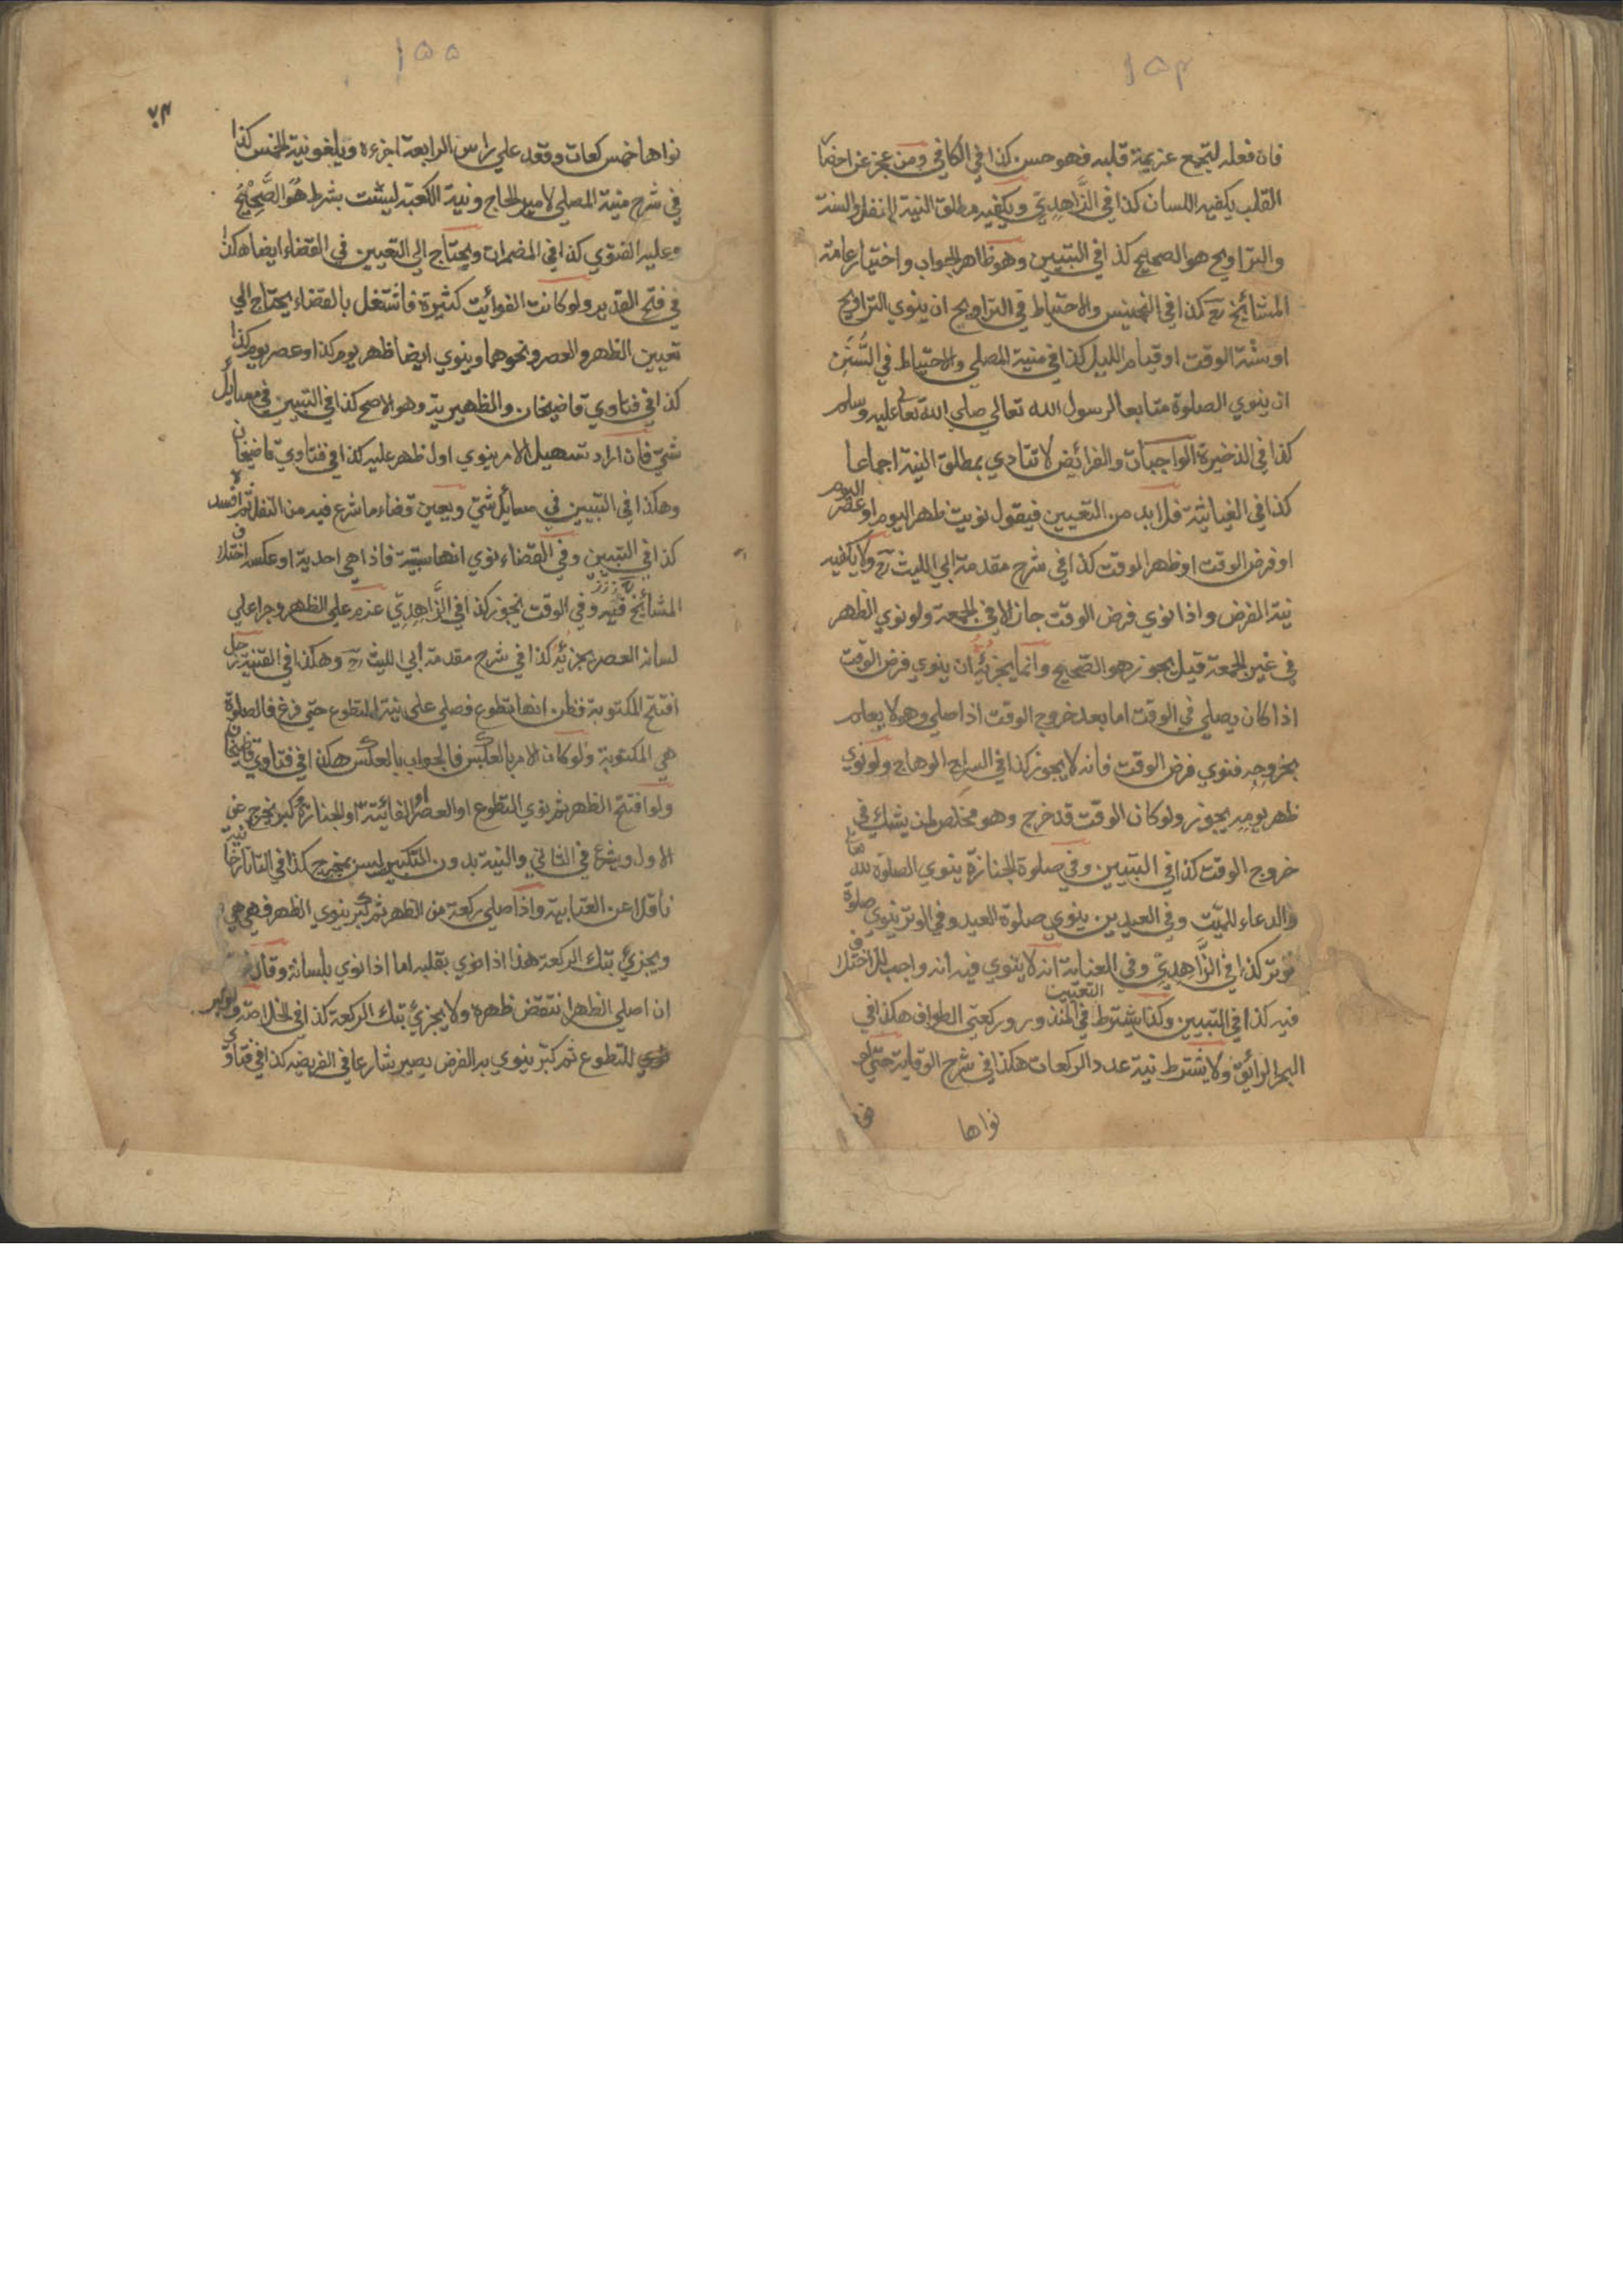 ١٥٤
فان فعله لتجتمع عزيمة قلبه فهو حسن كذا في الكافي ومن عجز عن احضار
القلب يكفيه اللسان كذا في الزَّاهِدِيّ ويكفيه مطلق النية للنفل والسنة
والتراويح هو الصحيح كذا في التبيين وهو ظاهر الجواب واختيار عامة
المشائخ كذا في التجنيس والاحتياط في التراويح ان ينوي التراويح
او سُنّة الوقت او قيام الليل كذا في منية المصلي والاحتياط في السُّنَنِ
ان ينوي الصلوة متابعا لرسول الله تعالي صلي الله تعالي عليه وسلم
كذا في الذخيرة الواجبات والفرائض لا تتادي بمطلق النية اجماعا
كذا في الغياثية فلا بد من التعيين فيقول نويت ظهر اليوم او عصر اليوم
او فرض الوقت او ظهر الوقت كذا في شرح مقدمة ابي الليث رح ولا يكفيه
نية الفرض واذا نوي فرض الوقت جاز الا في الجمعة ولو نوي الظهر
في غير الجمعة قيل يجوز هو الصَّحيح وانما يجزئه ان ينوي فرض الوقت
اذا كان يصلي في الوقت اما بعد خروج الوقت اذا صلي وهو لا يعلم
بخروجه فنوي فرض الوقت فانه لا يجوز كذا في السراج الوهاج ولو نوي
ظهر يومه يجوز ولو كان الوقت قد خرج وهو مخلص لمن يشك في
خروج الوقت كذا في التبيين وفي صلوة الجنازة ينوي الصلوة لله تعالي
والدعاء للميّت وفي العيدين ينوي صلوة العيد وفي الوتر ينوي صلوة
الوتر كذا في الزَّاهِدِيّ وفي العناية انه لا ينوي فيه انه واجب للاختلاف
فيه كذا في التبيين وكذا يشترط التعيين في المنذور وركعتي الطواف هكذا في
البحر الرائق ولا يشترط نية عدد الركعات هكذا في شرح الوقاية حتي لو
نواها
١٥٥
٧٤
نواها خمس ركعات وقعد علي راس الرابعة اجزءه ويلغو نية الخمس كذا
في شرح منية المصلي لامير الحاج ونية الكعبة ليست بشرط هُوَ الصَّحِيْحُ
وعليه الفتوي كذا في المضمرات ويحتاج الي التعيين في القضاء ايضا هكذا
في فتح القدير ولو كانت الفوائت كثيرة فاشتغل بالقضاء يحتاج الي
تعيين الظهر والعصر ونحوهما وينوي ايضا ظهر يوم كذا او عصر يوم كذا
كذا في فتاوي قاضيخان والظهيرية وهو الاصح كذا في التبيين في مسايل
شتي فان اراد تسهيل الامر ينوي اول ظهر عليه كذا في فتاوي قاضيخان
وهكذا في التبيين في مسائل شتي ويعين قضاء ما شرع فيه من النفل ثم افسده
كذا في التبيين وفي القضاء نوي انها سبتية فاذا هي احدية او عكسه اختلاف
المشائخ فيه وفي الوقت يجوز كذا في الزَّاهِدِيّ عزم علي الظهر وجرا علي
لسانه العصر يجزئه كذا في شرح مقدمة ابي الليث رح وهكذا في القنية رجل
افتتح المكتوبة فظن انها تطوع فصلي علي نية التطوع حتي فرغ فالصلوة
هي المكتوبة ولو كان الامر بالعكس فالجواب بالعكس هكذا في فتاوي قاضيخان
ولو افتتح الظهر ثم نوي التطوع او العصر او الفائتة او الجنازة ثم كبر يخرج عن
الاول ويشرع في الثاني والنية بدون التكبير ليس بمخرج كذا في التاتارخانية
ناقلا عن العتابية واذا صلي ركعة من الظهر ثم كبر ينوي الظهر فهي هي
ويجزئ بتلك الركعة هذا اذا نوي بقلبه اما اذا نوي بلسانه وقال
ان اصلي الظهر انتقض ظهره ولا يجزئ بتلك الركعة كذا في الخلاصة ولو كبر
للتطوع ثم كبر ينوي به الفرض يصير شارعا في الفريضه كذا في فتاوي